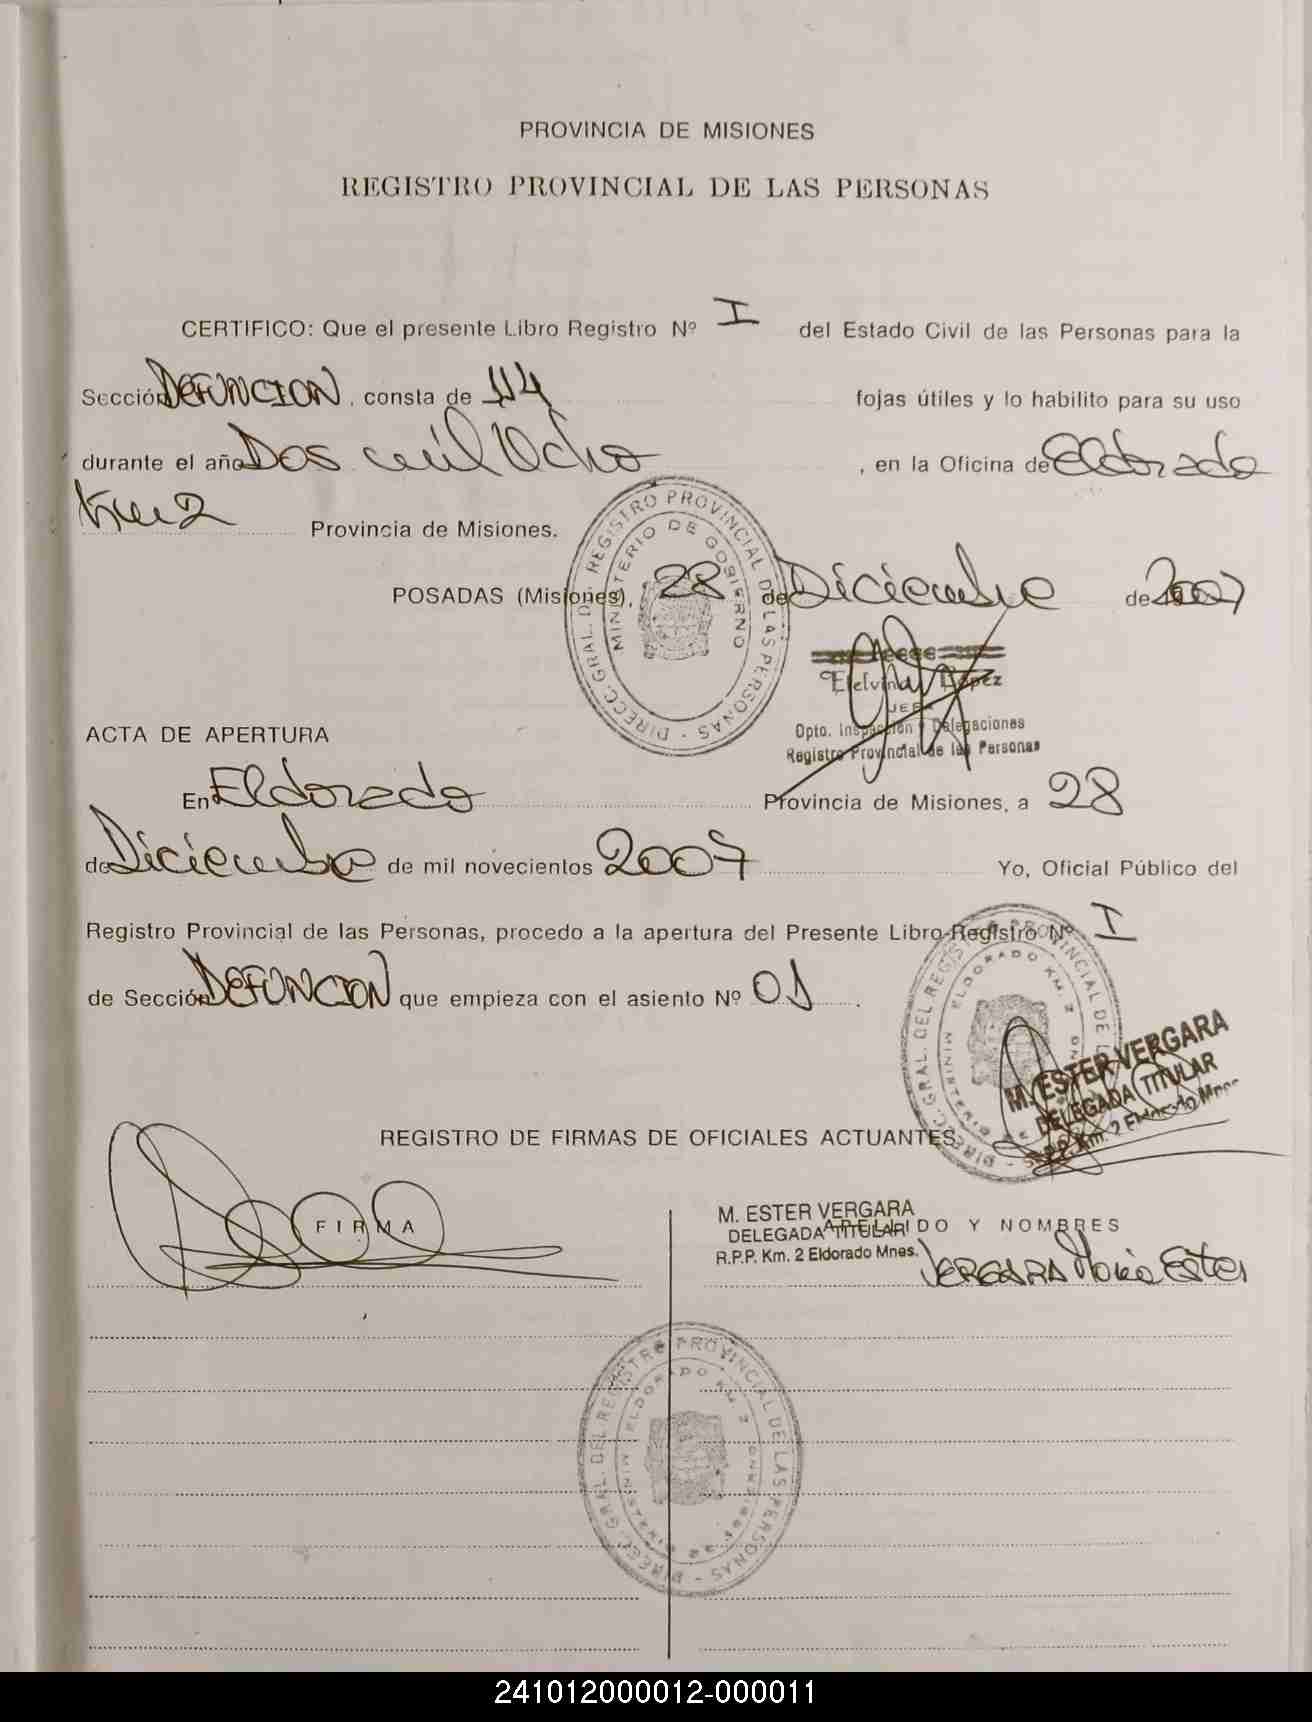 PROVINCIA DE MISIONES
REGISTRO PROVINCIAL DE LAS PERSONAS
CERTIFICO: Que el presente Libro Registro Nº I del Estado Civil de las Personas para la
Sección DEFUNCION, consta de 114 fojas útiles y lo habilito para su uso
durante el año Dos mil Ocho, en la Oficina de Eldorado
Km 2 Provincia de Misiones.
POSADAS (Misiones), 28 de Diciembre de 2007
DIRECC. GRAL. DEL REGISTRO PROVINCIAL DE LAS PERSONAS
MINISTERIO DE GOBIERNO
López
JEFA
Dpto. Inspección y Delegaciones
Registro Provincial de las Personas
ACTA DE APERTURA
En Eldorado Provincia de Misiones, a 28
de Diciembre de mil novecientos 2007 Yo, Oficial Público del
Registro Provincial de las Personas, procedo a la apertura del Presente Libro Registro Nº I
de Sección DEFUNCION que empieza con el asiento Nº 01.
DIRECC. GRAL. DEL REGISTRO PROVINCIAL DE LAS PERSONAS
ELDORADO KM. 2
M. ESTER VERGARA
DELEGADA TITULAR
R.P.P. Km. 2 Eldorado Mnes.
REGISTRO DE FIRMAS DE OFICIALES ACTUANTES
FIRMA
APELLIDO Y NOMBRES
M. ESTER VERGARA
DELEGADA TITULAR
R.P.P. Km. 2 Eldorado Mnes.
VERGARA María Ester
DIRECC. GRAL. DEL REGISTRO PROVINCIAL DE LAS PERSONAS
ELDORADO KM. 2
241012000012-000011